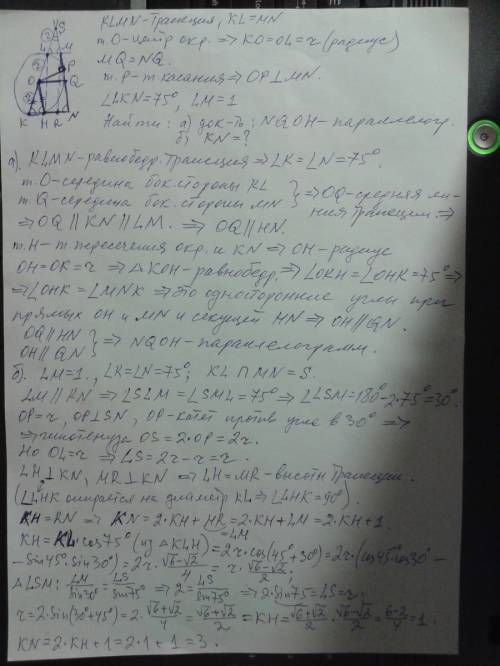 KLMN-трапеция, KL=MN
т.O-центр окр. ⇒ KO=OL=r (радиус)
MQ=NQ.
т.P-т.касания ⇒ OP⊥MN.
∠LKN=75°, LM=1
Найти: а) док-ть: NQOH-параллелогр.
б) KN=?
S
L M
P
O Q
K H R N
а) KLMN-равнобедр. трапеция ⇒ ∠K=∠N=75°.
т.O-середина бок.стороны KL
т.Q-середина бок.стороны MN } ⇒ OQ-средняя линия трапеции. ⇒
⇒ OQ ∥ KN ∥ LM. ⇒ OQ ∥ HN.
т.H-т.пересечения окр. и KN ⇒ OH-радиус
OH=OK=r ⇒ △KOH-равнобедр. ⇒ ∠OKH=∠OHK=75° ⇒
⇒ ∠OHK=∠MNK ⇒ это односторонние углы при
прямых OH и MN и секущей HN ⇒ OH ∥ QN.
OQ ∥ HN
OH ∥ QN } ⇒ NQOH-параллелограмм.
б). LM=1., ∠K=∠N=75°; KL ∩ MN=S.
LM ∥ KN ⇒ ∠SLM=∠SML=75° ⇒ ∠LSM=180°-2·75°=30°.
OP=r, OP⊥SN, OP-катет против угла в 30° ⇒
⇒ гипотенуза OS=2·OP=2r.
Но OL=r ⇒ LS=2r-r=r.
LH⊥KN, MR⊥KN ⇒ LH=MR-высоты трапеции.
(∠LHK опирается на диаметр KL ⇒ ∠LHK=90°).
KH=RN ⇒ KN=2·KH+HR=2·KH+LM=2·KH+1.
=LM
KH=KL·cos75° (из △KLH)=2r·cos(45°+30°)=2r·(cos45°·cos30°-
-sin45°·sin30°)=2r·(√6-√2)/4=r·(√6-√2)/2;
△LSM: LM/sin30°=LS/sin75° ⇒ 2=LS/sin75° ⇒ 2·sin75=LS=r;
r=2·sin(30°+45°)=2·(√6+√2)/4=(√6+√2)/2 ⇒ KH=(√6+√2)/2·(√6-√2)/2=(6-2)/4=1.
KN=2·KH+1=2·1+1=3.